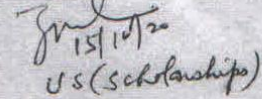 15/10/20
US (Scholarships)